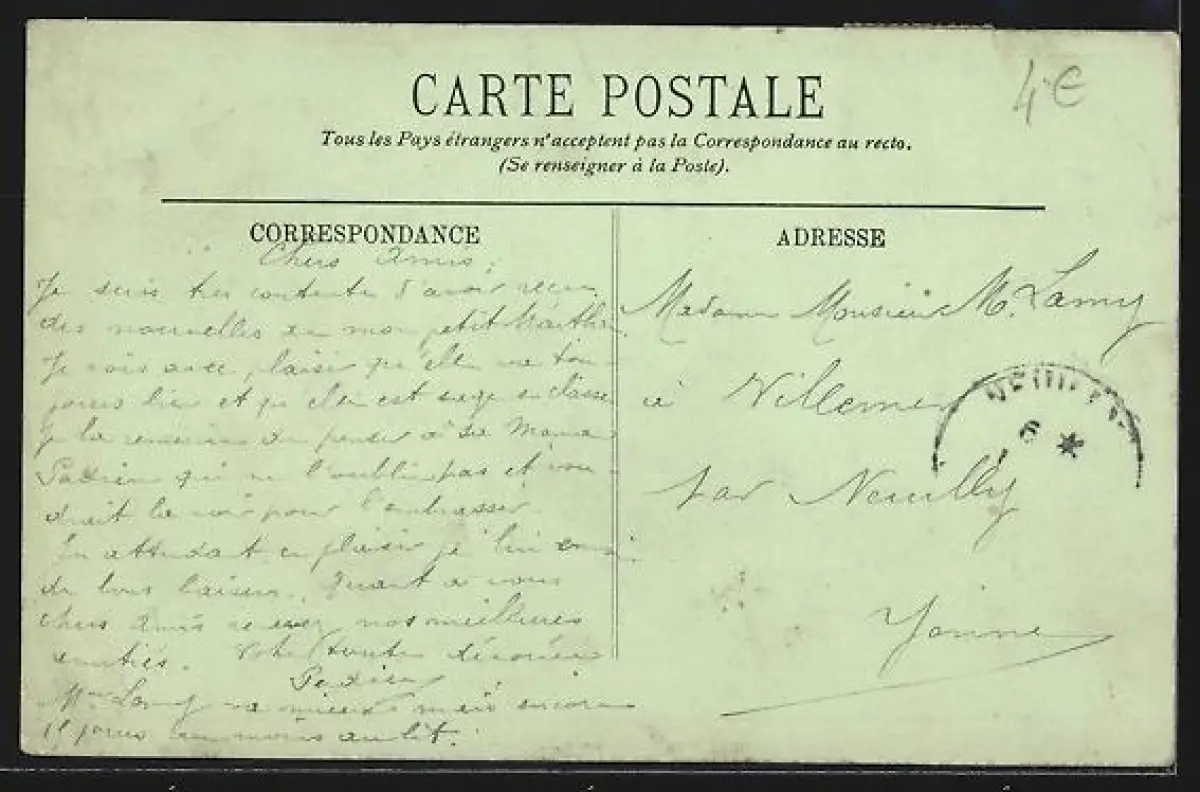 4 €
CARTE POSTALE
Tous les Pays étrangers n'acceptent pas la Correspondance au recto.
(Se renseigner à la Poste).
CORRESPONDANCE
Chers Amis,
Je suis très contente d'avoir reçu
des nouvelles de mon petit
Je vois avec plaisir qu'elle va tou-
jours bien et qu'elle est sage en classe
je la remercie de penser à sa Mama
qui ne l'oublie pas et vou-
drait la voir pour l'embrasser.
En attendant ce plaisir je lui
de bons baisers. Quant à vous
chers Amis recevez nos meilleures
amitiés. Votre
Mme Lamy va mieux mais encore
jours au moins au lit.
ADRESSE
Madame Monsieur M. Lamy
à Villemer
par Neuilly
Yonne
6